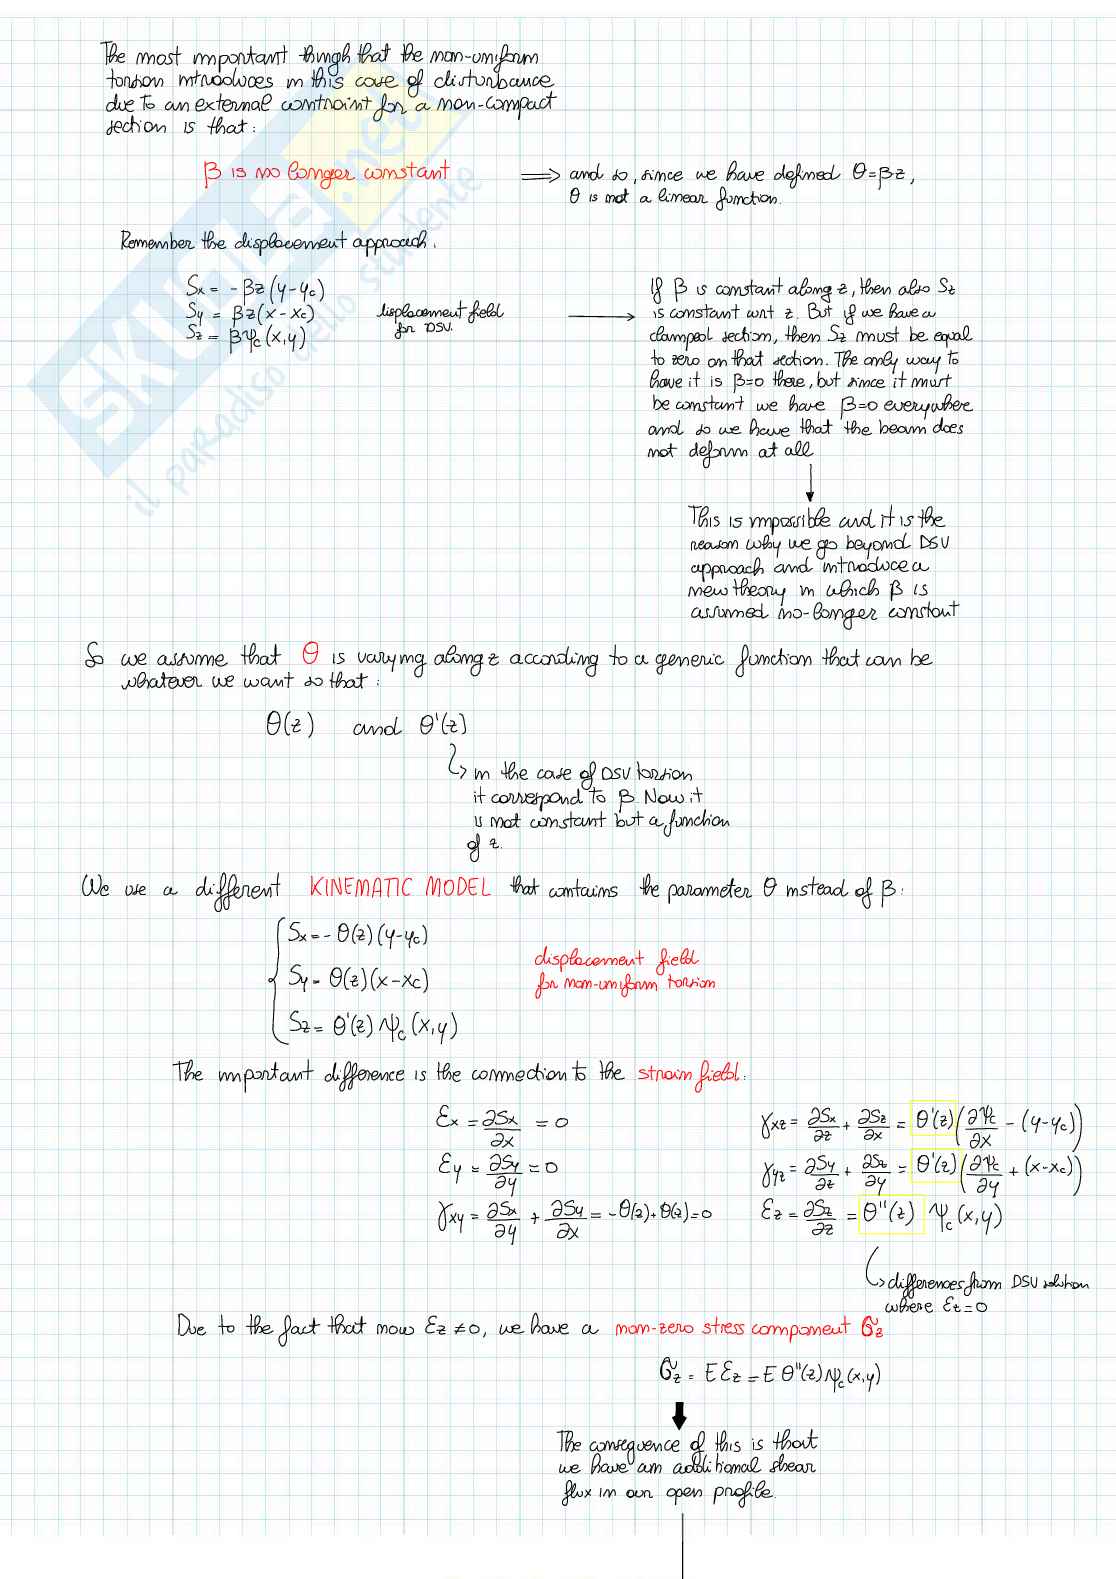 The most important thingh that the non-uniform
torsion introduces in this case of disturbance
due to an external contraint for a non-compact
section is that:
β is no longer constant ⟹ and so, since we have defined θ=βz,
θ is not a linear function.
Remember the displacement approach.
Sx = -βz(y-yc)
Sy = βz(x-xc)
Sz = βψc(x,y)
displacement field
for DSV.
If β is constant along z, then also Sz
is constant wrt z. But if we have a
clamped section, then Sz must be equal
to zero on that section. The only way to
have it is β=0 there, but since it must
be constant we have β=0 everywhere
and so we have that the beam does
not deform at all
This is impossible and it is the
reason why we go beyond DSV
approach and introduce a
new theory in which β is
assumed no-longer constant
So we assume that θ is varying along z according to a generic function that can be
whatever we want so that:
θ(z) and θ'(z)
in the case of DSV torsion
it correspond to β. Now it
is not constant but a function
of z.
We use a different KINEMATIC MODEL that contains the parameter θ instead of β:
Sx = -θ(z)(y-yc)
Sy = θ(z)(x-xc)
Sz = θ'(z)ψc(x,y)
displacement field
for non-uniform torsion
The important difference is the connection to the strain field.
εx = ∂Sx/∂x = 0
εy = ∂Sy/∂y = 0
γxy = ∂Sx/∂y + ∂Sy/∂x = -θ(z)+θ(z)=0
γxz = ∂Sx/∂z + ∂Sz/∂x = θ'(z)(∂ψc/∂x - (y-yc))
γyz = ∂Sy/∂z + ∂Sz/∂y = θ'(z)(∂ψc/∂y + (x-xc))
εz = ∂Sz/∂z = θ''(z) ψc(x,y)
differences from DSV solution
where εz=0
Due to the fact that now εz≠0, we have a non-zero stress component σz
σz = E εz = E θ''(z)ψc(x,y)
The consequence of this is that
we have an additional shear
flux in our open profile.
SKUOLA.net
il paradiso dello studente